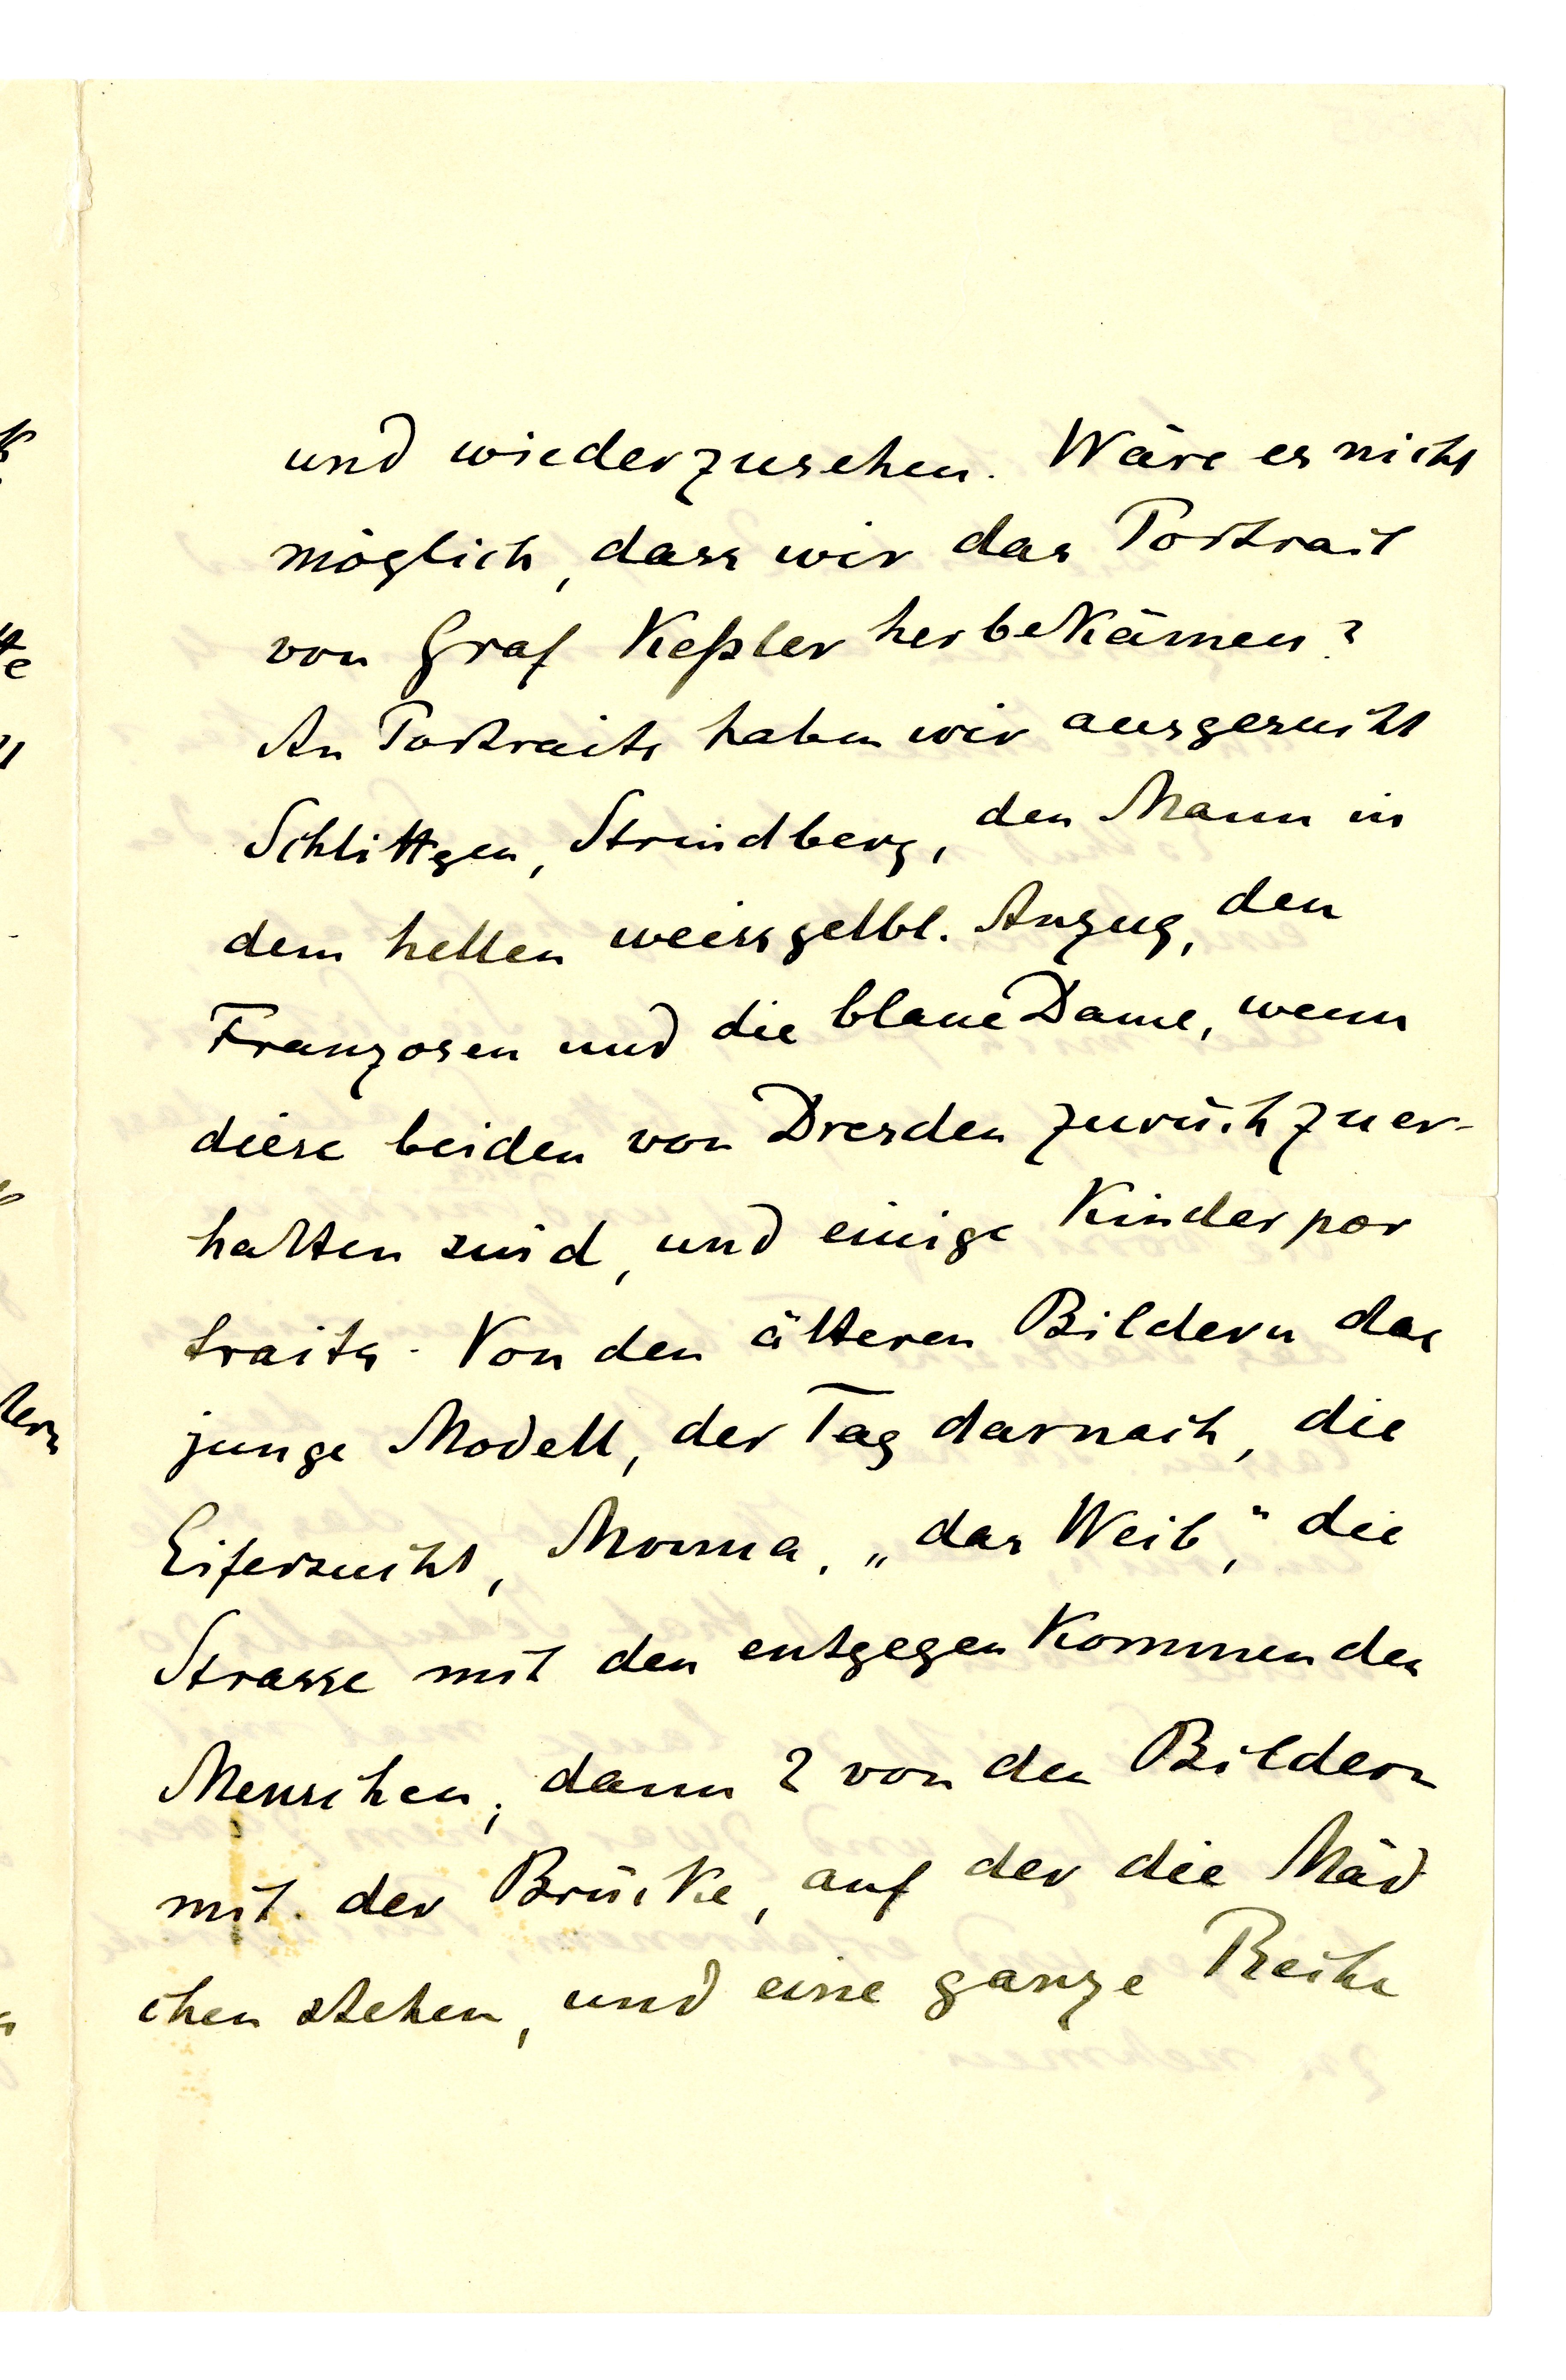 und wiederzusehen. Wäre es nicht
möglich, dass wir das Portrait
von Graf Keßler herbekämen?
An Portraits haben wir ausgesucht
Schlittgen, Strindberg, den Mann in
dem hellen weissgelbl. Anzug, den
Franzosen und die blaue Dame, wenn
diese beiden von Dresden zurückzuer-
halten sind, und einige Kinderpor
traits. Von den älteren Bildern das
junge Modell, der Tag darnach, die
Eifersucht, Monna, „das Weib," die
Strasse mit den entgegenkommenden
Menschen, dann 2 von den Bildern
mit der Brücke, auf der die Mäd
chen stehen, und eine ganze Reihe